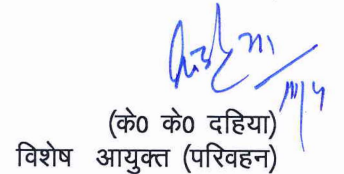 (के0 के0 दहिया)
विशेष आयुक्त (परिवहन)